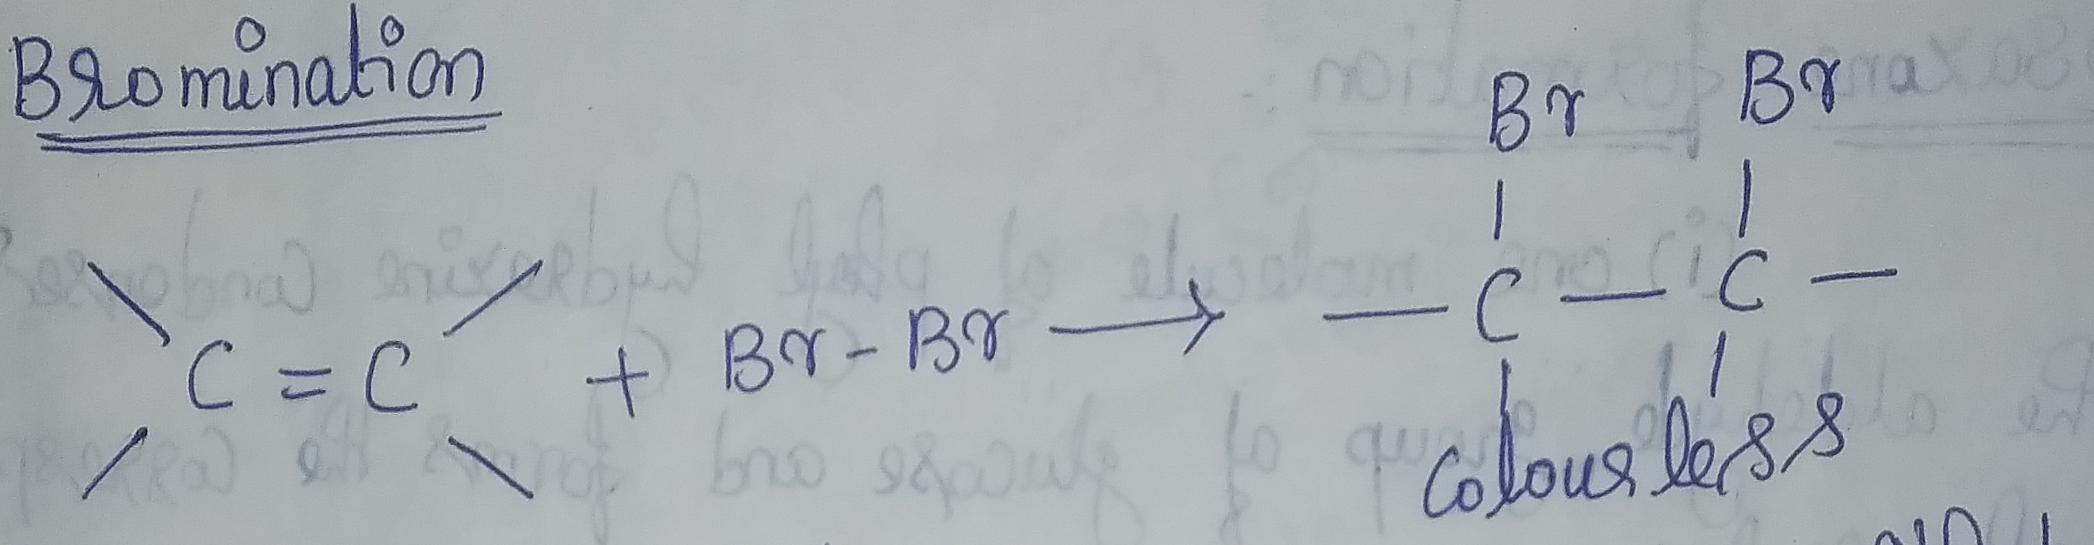 Bromination
Br Br
C = C + Br - Br → - C - C -
colourless